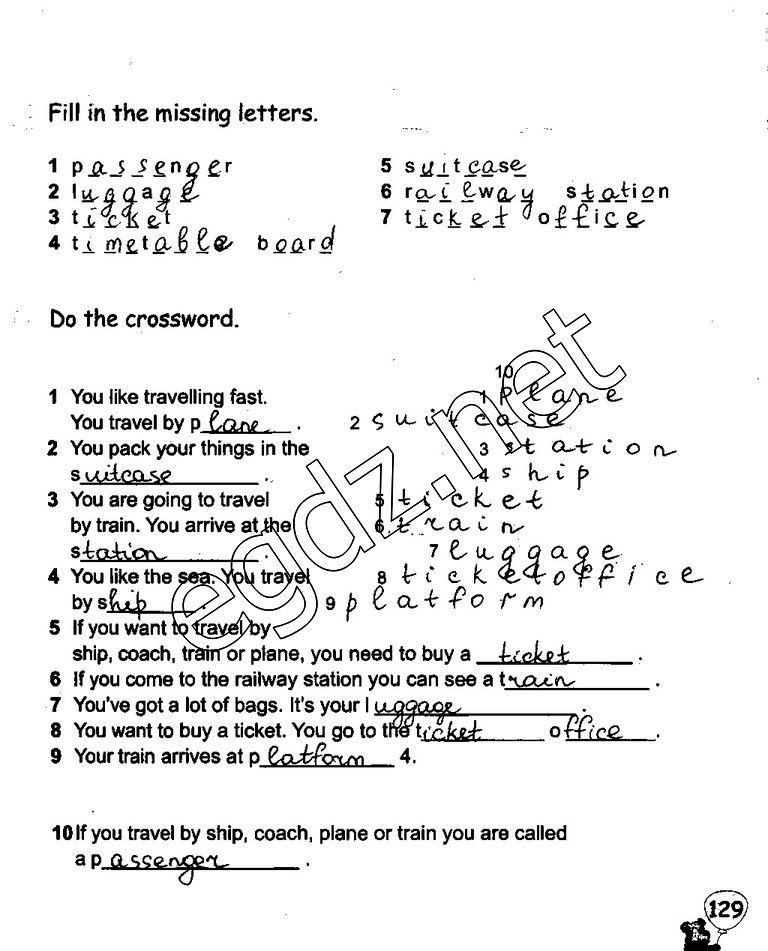 Fill in the missing letters.
1 passenger
2 luggage
3 ticket
4 timetable board
5 suitcase
6 railway station
7 ticket office
Do the crossword.
1 You like travelling fast.
You travel by plane.
2 You pack your things in the
suitcase.
3 You are going to travel
by train. You arrive at the
station.
4 You like the sea. You travel
by ship.
5 If you want to travel by
ship, coach, train or plane, you need to buy a ticket.
6 If you come to the railway station you can see a train.
7 You've got a lot of bags. It's your luggage.
8 You want to buy a ticket. You go to the ticket office.
9 Your train arrives at platform 4.
10 If you travel by ship, coach, plane or train you are called
a passenger.
10
1 plane
2 suitcase
3 station
4 ship
5 ticket
6 train
7 luggage
8 ticketoffice
9 platform
egdz.net
129